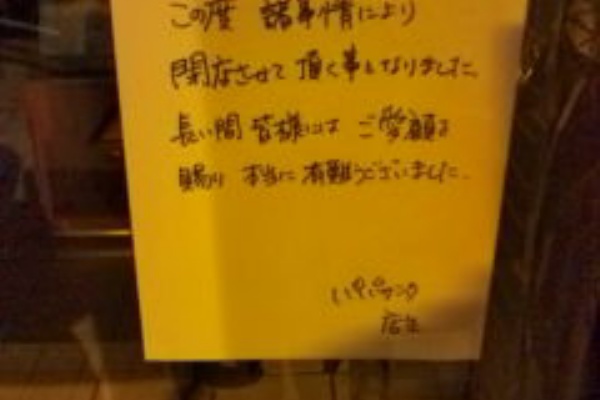 この度 諸事情により
閉店させて頂く事となりました。
長い間 皆様には ご愛顧を
賜り 本当に有難うございました。
店主